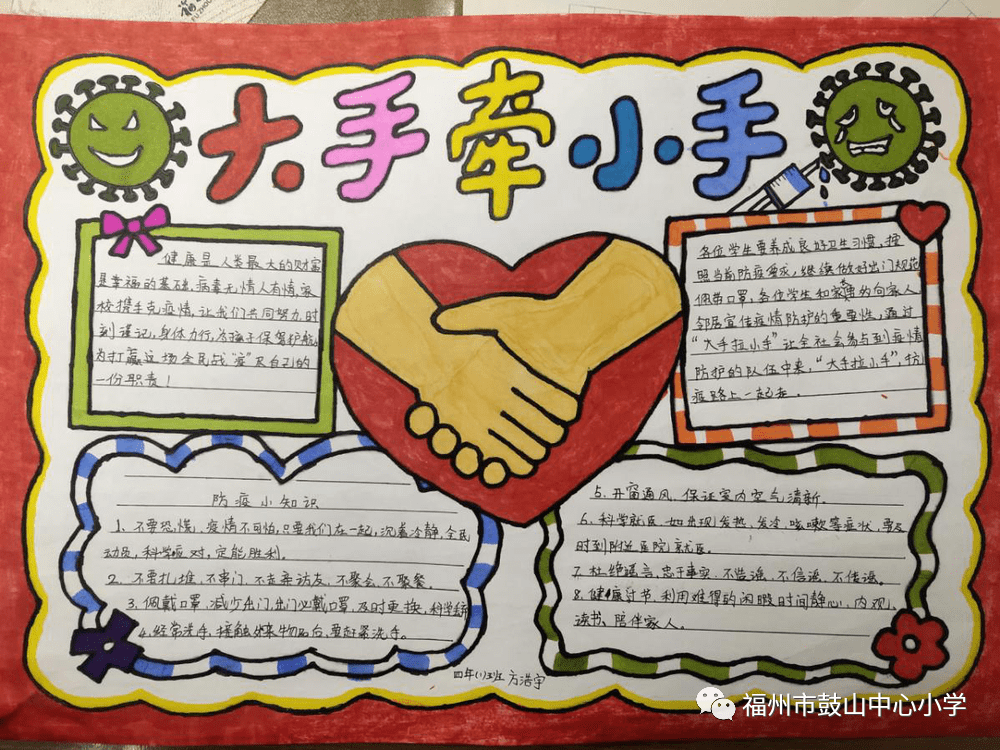 大手牵小手
健康是人类最大的财富
是幸福的基础,病毒无情人有情,家
校携手克疫情,让我们共同努力,时
刻谨记,身体力行,为孩子保驾护航,
为打赢这场全民战“疫”尽自己的
一份职责!
各位学生要养成良好卫生习惯,按
照当前防疫要求,继续做好出门规范
佩带口罩,各位学生和家长的向家人
邻居宣传疫情防护的重要性,通过
“大手拉小手”让全社会参与到疫情
防护的队伍中来,“大手拉小手”,抗
疫路上一起走。
防疫小知识
1、不要恐慌,疫情不可怕,只要我们在一起,沉着冷静,全民
动员,科学应对,定能胜利。
2、不要扎堆、不串门、不走亲访友、不聚会、不聚餐。
3、佩戴口罩,减少出门,出门必戴口罩,及时更换,科学
4、经常洗手,接触物品后,要赶紧洗手。
5、开窗通风,保证室内空气清新。
6、科学就医,如出现发热、发冷、咳嗽等症状,要及
时到附近医院就医。
7、杜绝谣言,忠于事实,不造谣、不信谣、不传谣。
8、健康过节,利用难得的闲暇时间静心、内观、
读书、陪伴家人。
四年(1)班 方浩宇
福州市鼓山中心小学